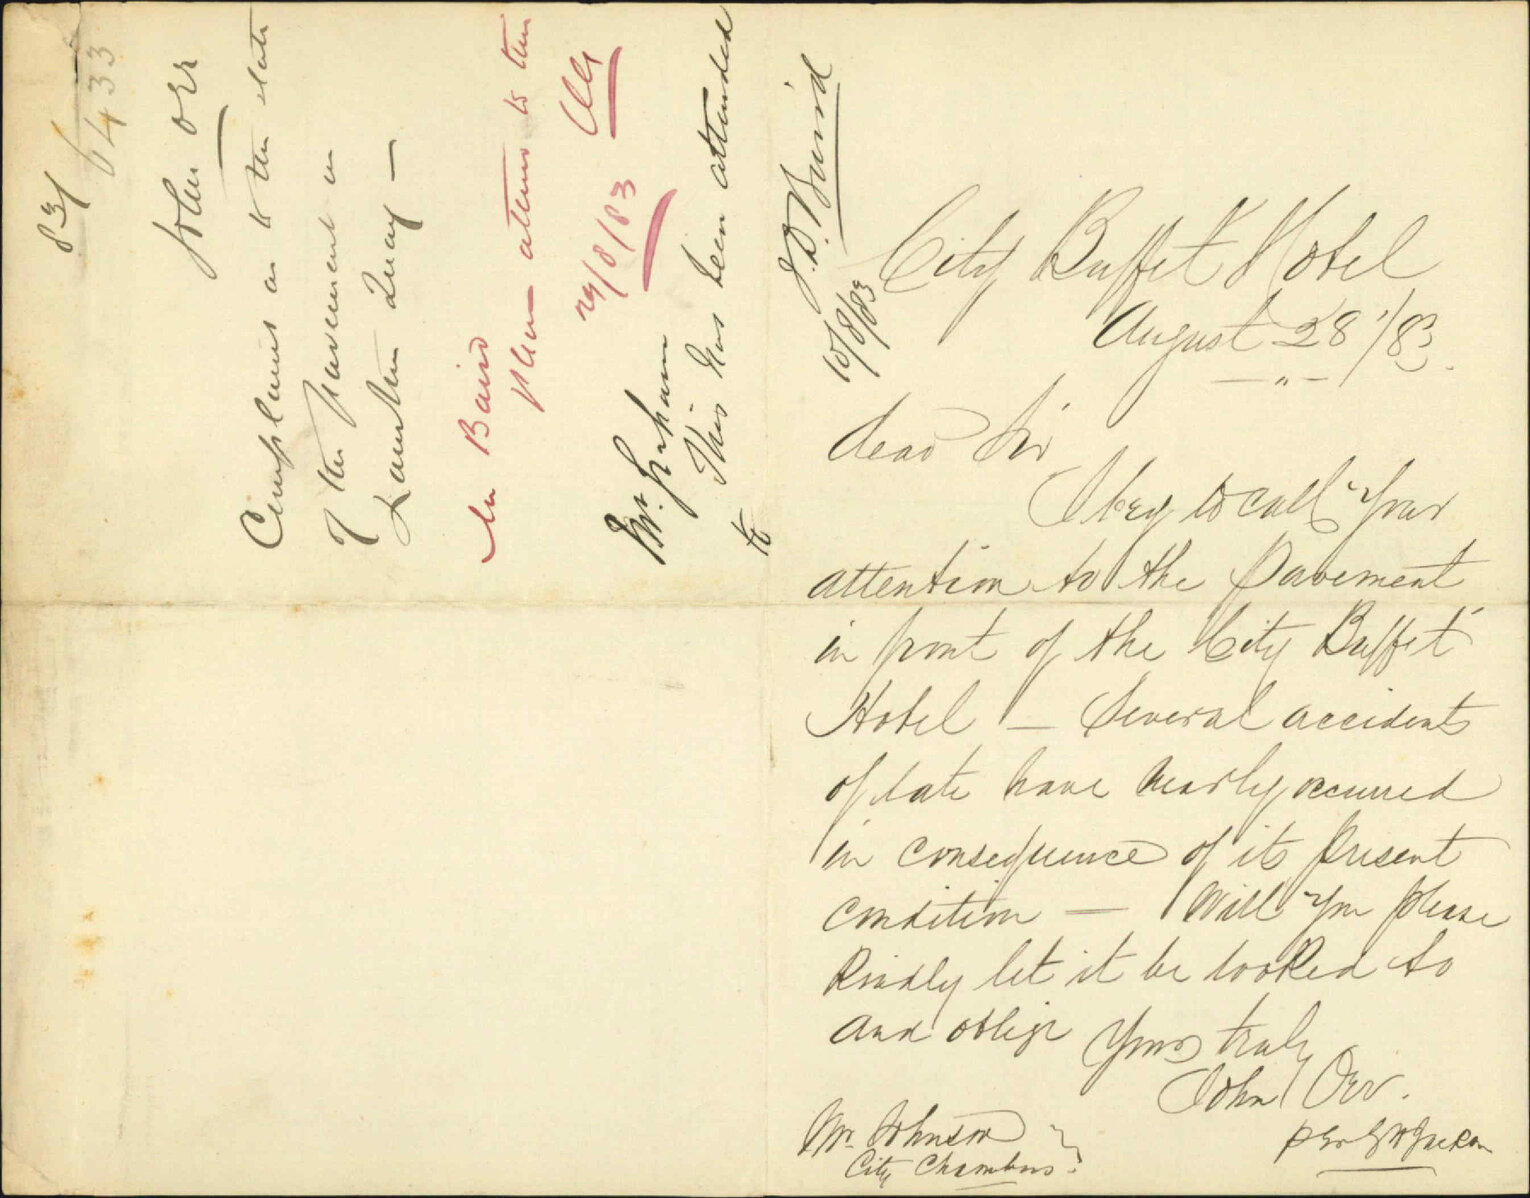 City Buffet Hotel
August 28 '/83.
dear Sir
I beg to call your
attention to the Pavement
in front of the City Buffet
Hotel – Several accidents
of late have nearly occurred
in consequence of its present
condition – Will you please
Kindly let it be looked to
and oblige Yours truly
John Orr.
per
Mr. Johnson
City Chambers.
83/
6433
John Orr
Complains as to the state
of the pavement in
Launceston Quay –
Mr Baird
please attend to this
29/8/83
Mr. Graham
This has been attended
to
J.D. Baird
/8/83